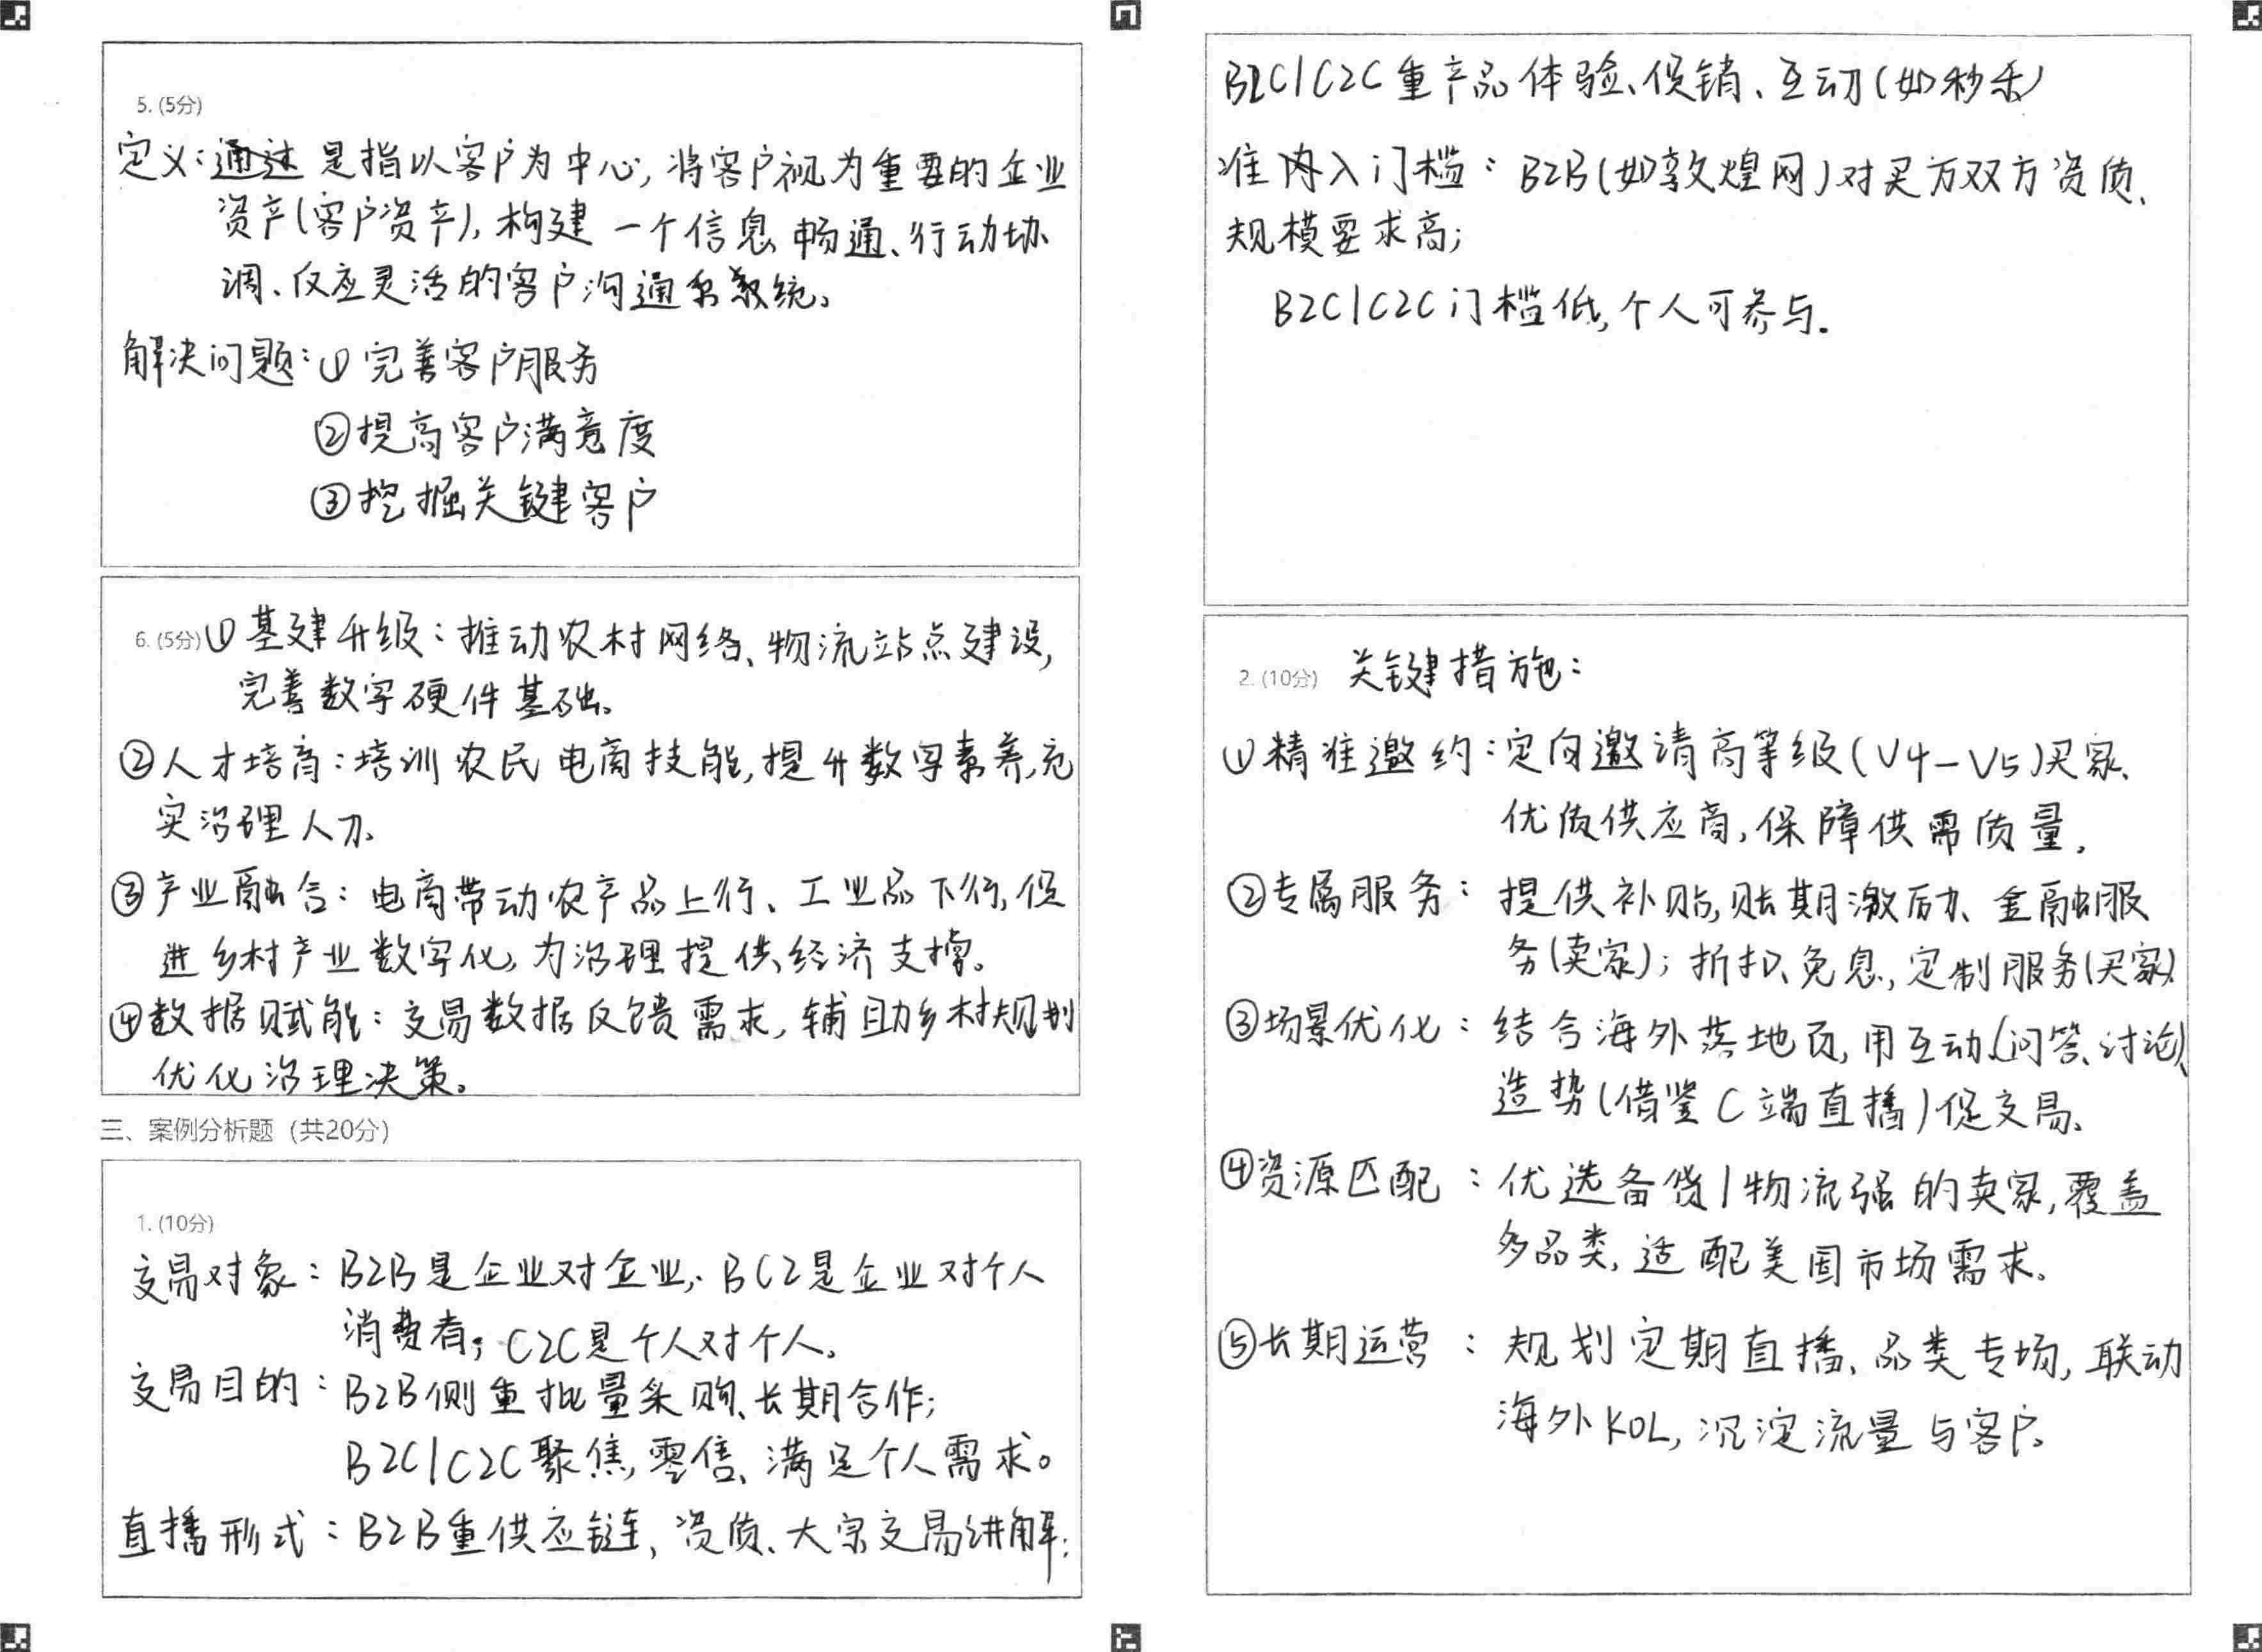 5. (5分)
定义: 通过 是指以客户为中心, 将客户视为重要的企业
资产(客户资产), 构建一个信息畅通、行动协
调、反应灵活的客户沟通系统。
解决问题: ①完善客户服务
②提高客户满意度
③挖掘关键客户
6. (5分) ①基建升级: 推动农村网络、物流站点建设,
完善数字硬件基础。
②人才培育: 培训农民电商技能, 提升数字素养, 充
实治理人才。
③产业融合: 电商带动农产品上行、工业品下行, 促
进乡村产业数字化, 为治理提供经济支撑。
④数据赋能: 交易数据反馈需求, 辅助乡村规划
优化治理决策。
三、案例分析题 (共20分)
1. (10分)
交易对象: B2B是企业对企业, BC2是企业对个人
消费者; C2C是个人对个人。
交易目的: B2B侧重批量采购、长期合作;
B2C/C2C聚焦零售、满足个人需求。
直播形式: B2B重供应链、资质、大宗交易讲解;
B2C/C2C重产品体验、促销、互动(如秒杀)
准入门槛: B2B(如敦煌网)对买方双方资质、
规模要求高;
B2C/C2C门槛低, 个人可参与.
2. (10分) 关键措施:
①精准邀约: 定向邀请高等级(V4-V5)买家、
优质供应商, 保障供需质量。
②专属服务: 提供补贴, 账期激励、金融服
务(卖家); 折扣、免息, 定制服务(买家)
③场景优化: 结合海外落地页, 用互动(问答、讨论)、
造势(借鉴C端直播)促交易。
④资源匹配: 优选备货/物流强的卖家, 覆盖
多品类, 适配美国市场需求。
⑤长期运营: 规划定期直播、品类专场, 联动
海外KOL, 沉淀流量与客户。